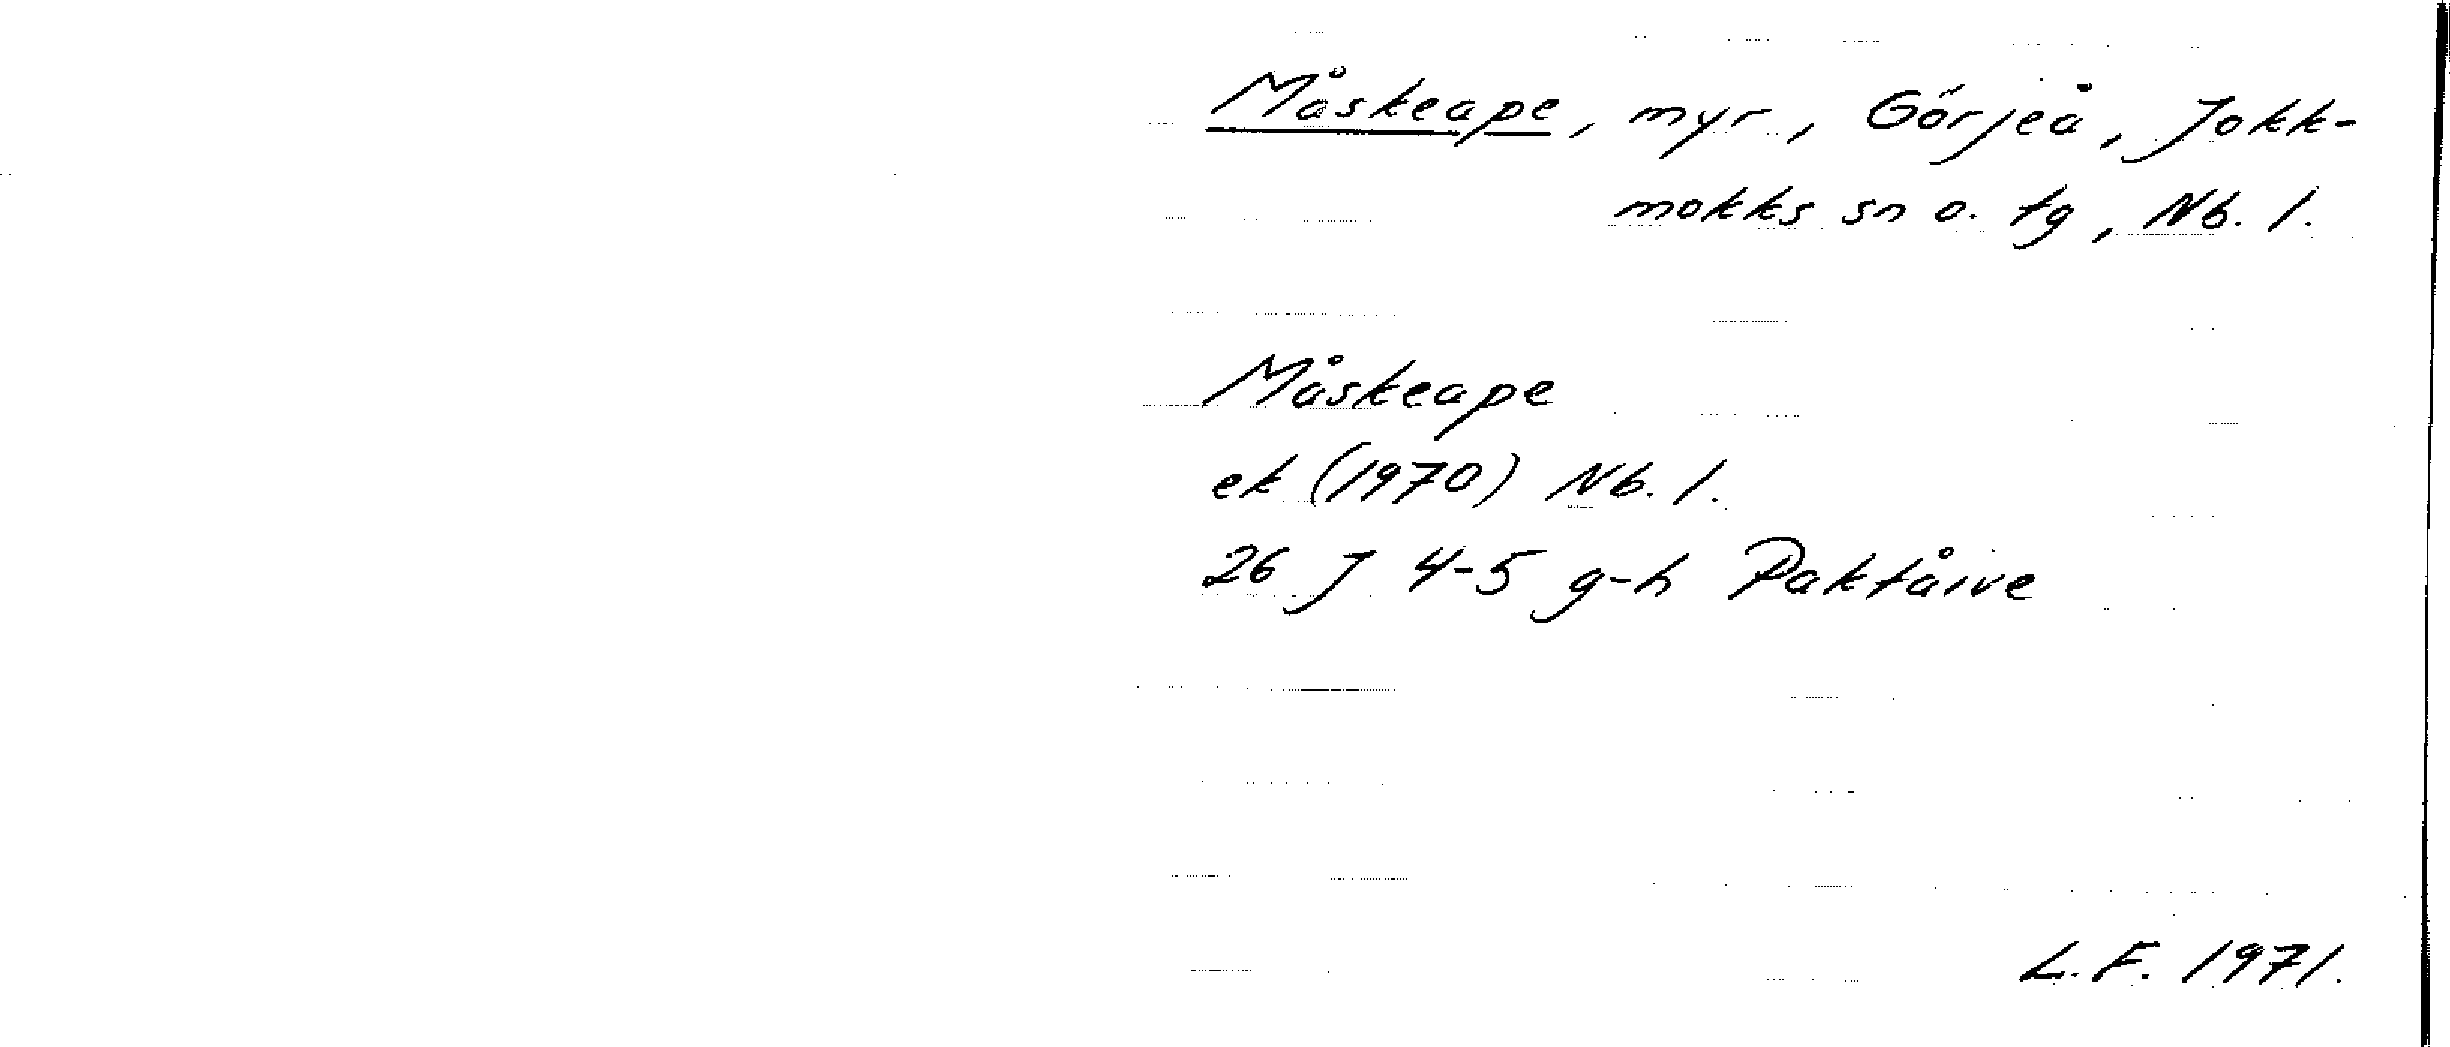 Måskeape, myr, Görjeå, Jokk-
mokks sn o. tg, Nb. l.
Måskeape
ek (1970) Nb. l.
26 J 4-5 g-h Paktåive
L. F. 1971.